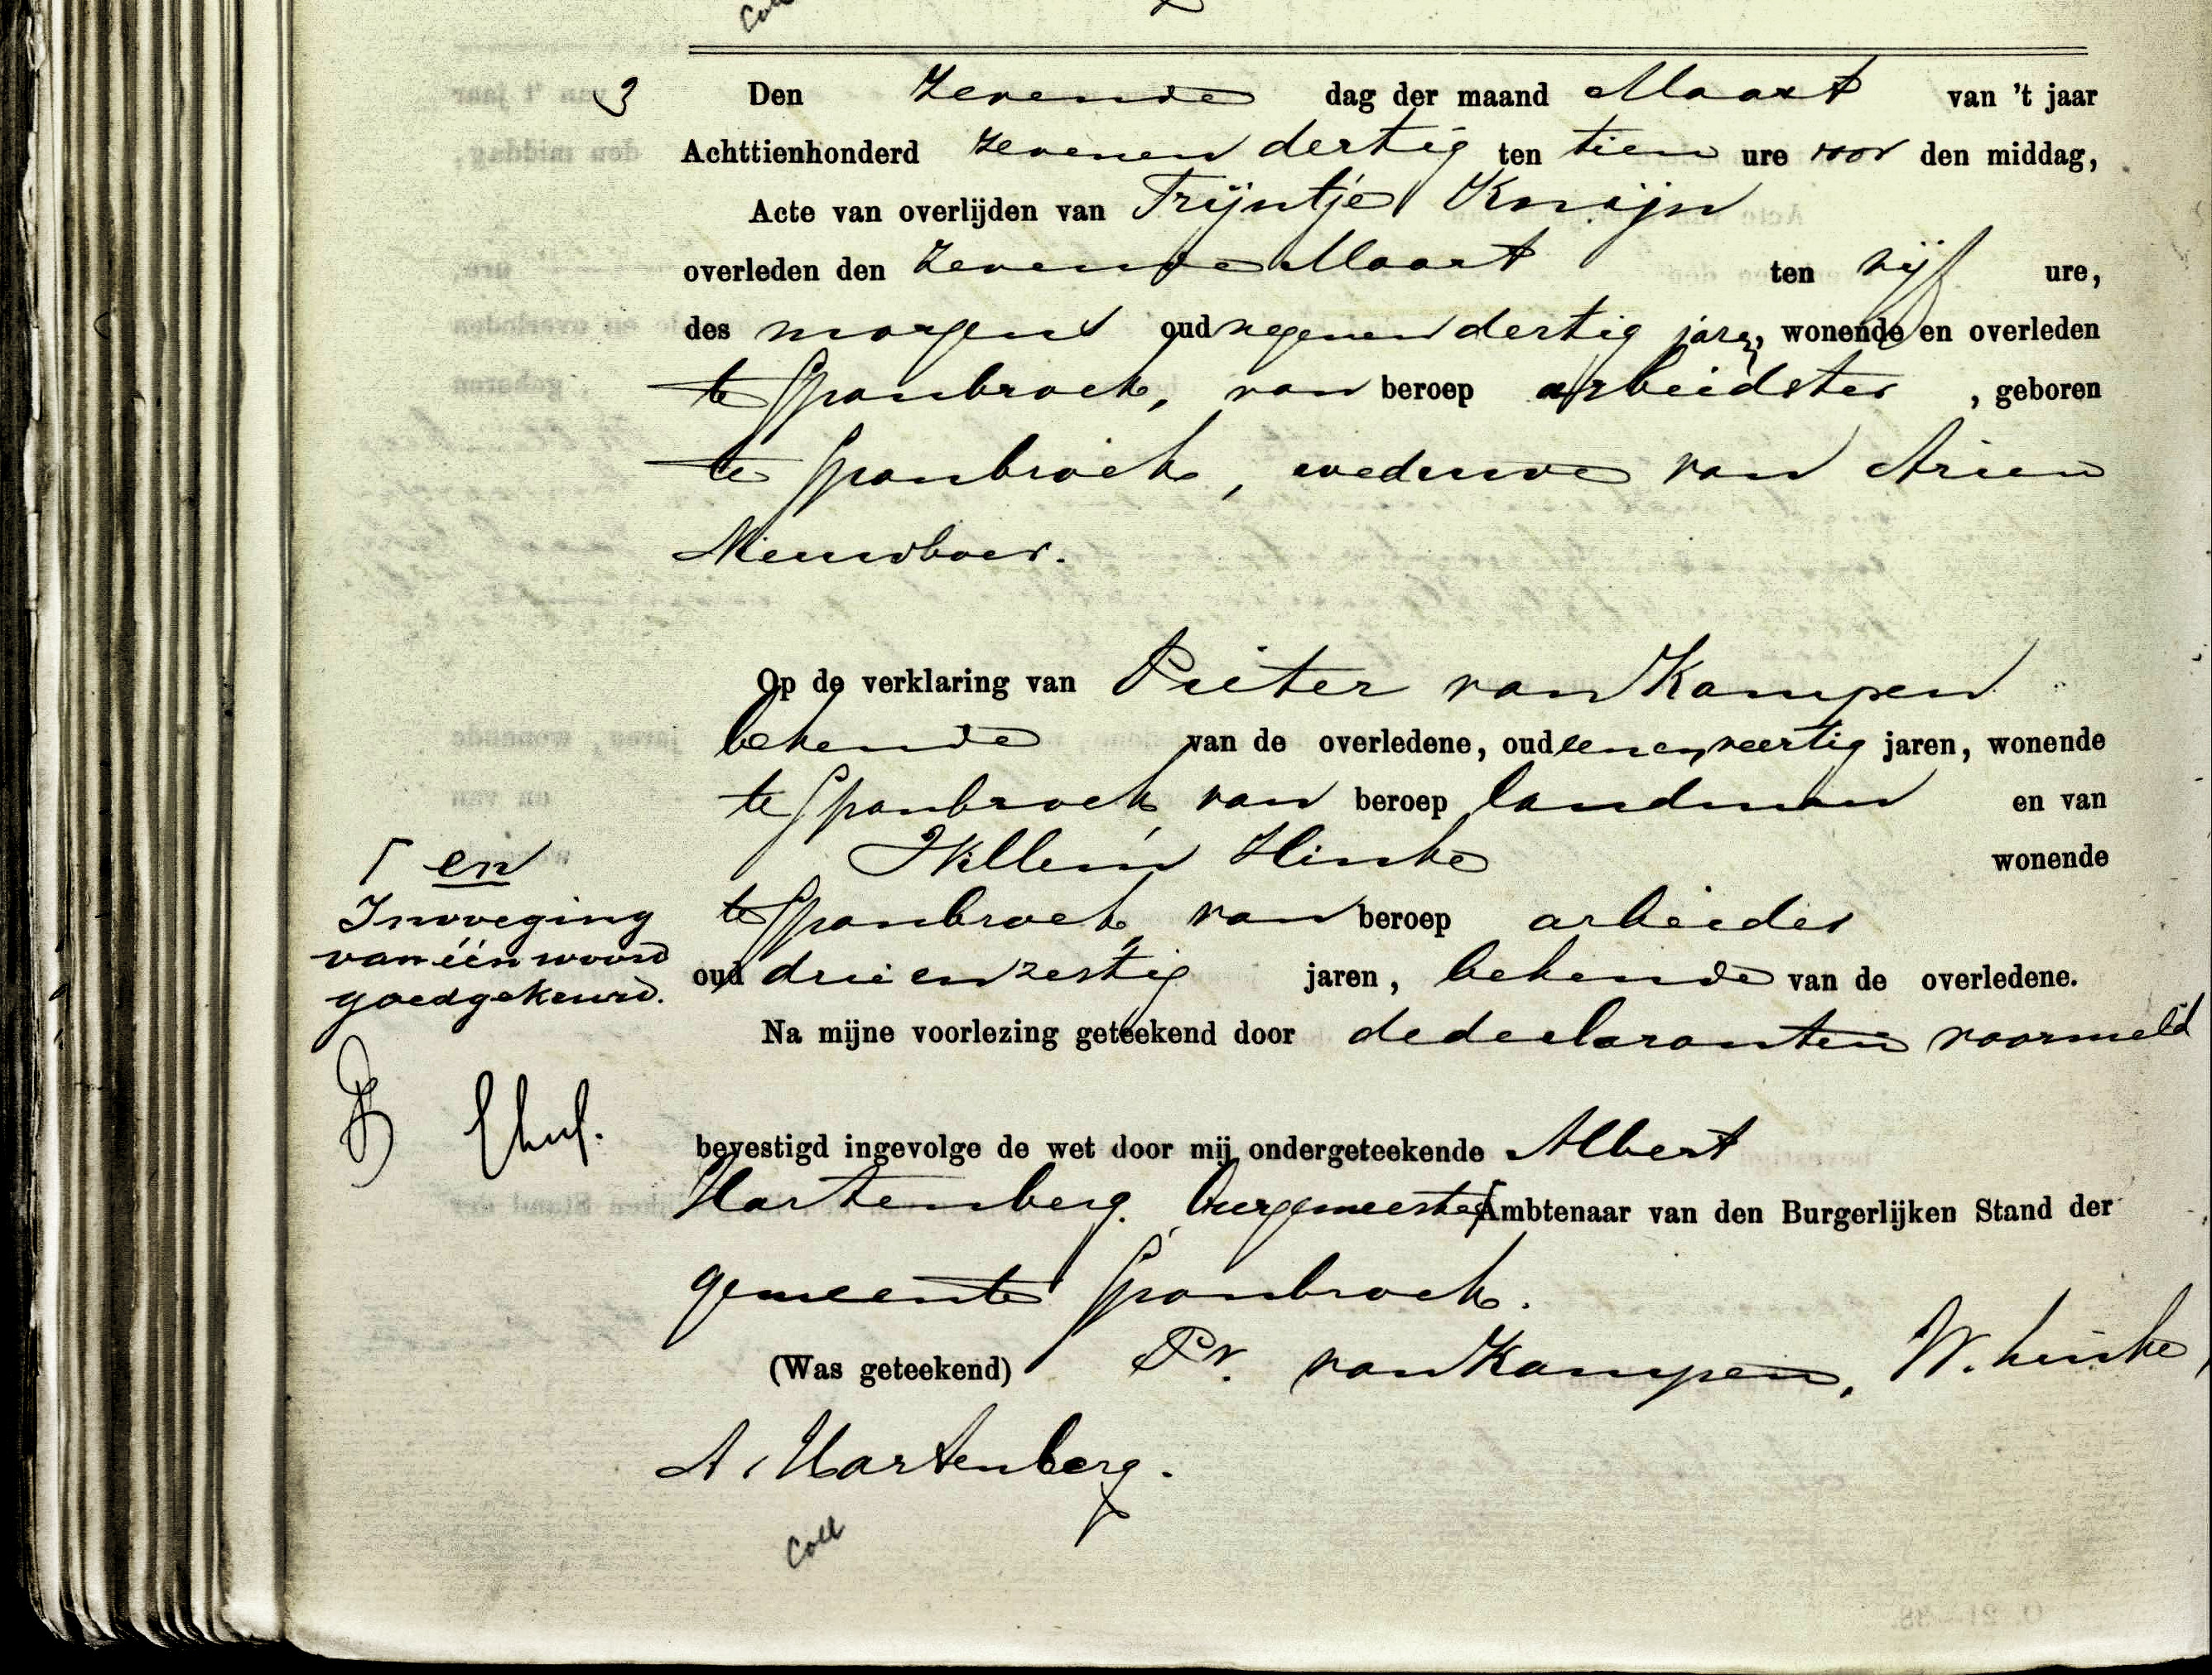 Coll
3 Den zevende dag der maand Maart van 't jaar
Achttienhonderd zevenen dertig ten tien ure voor den middag,
Acte van overlijden van Trijntje Knijn
overleden den zevende Maart ten vijf ure,
des morgens oud negenen dertig jaren, wonende en overleden
te Spanbroek, van beroep arbeidster, geboren
te Spanbroek, weduwe van Arien
Nieuwboer.
Op de verklaring van Pieter van Kampen
bekende van de overledene, oud eenenveertig jaren, wonende
te Spanbroek, van beroep landman en van
Willem Hinke wonende
te Spanbroek, van beroep arbeider
oud drie en zestig jaren, bekende van de overledene.
Na mijne voorlezing geteekend door de declaranten voormeld
bevestigd ingevolge de wet door mij ondergeteekende Albert
Hartenberg, burgemeester Γ Ambtenaar van den Burgerlijken Stand der
gemeente Spanbroek.
(Was geteekend) Pr. van Kampen, W. hinke,
A. Hartenberg.
Coll
Γ en
Invoeging
van één woord
goedgekeurd.